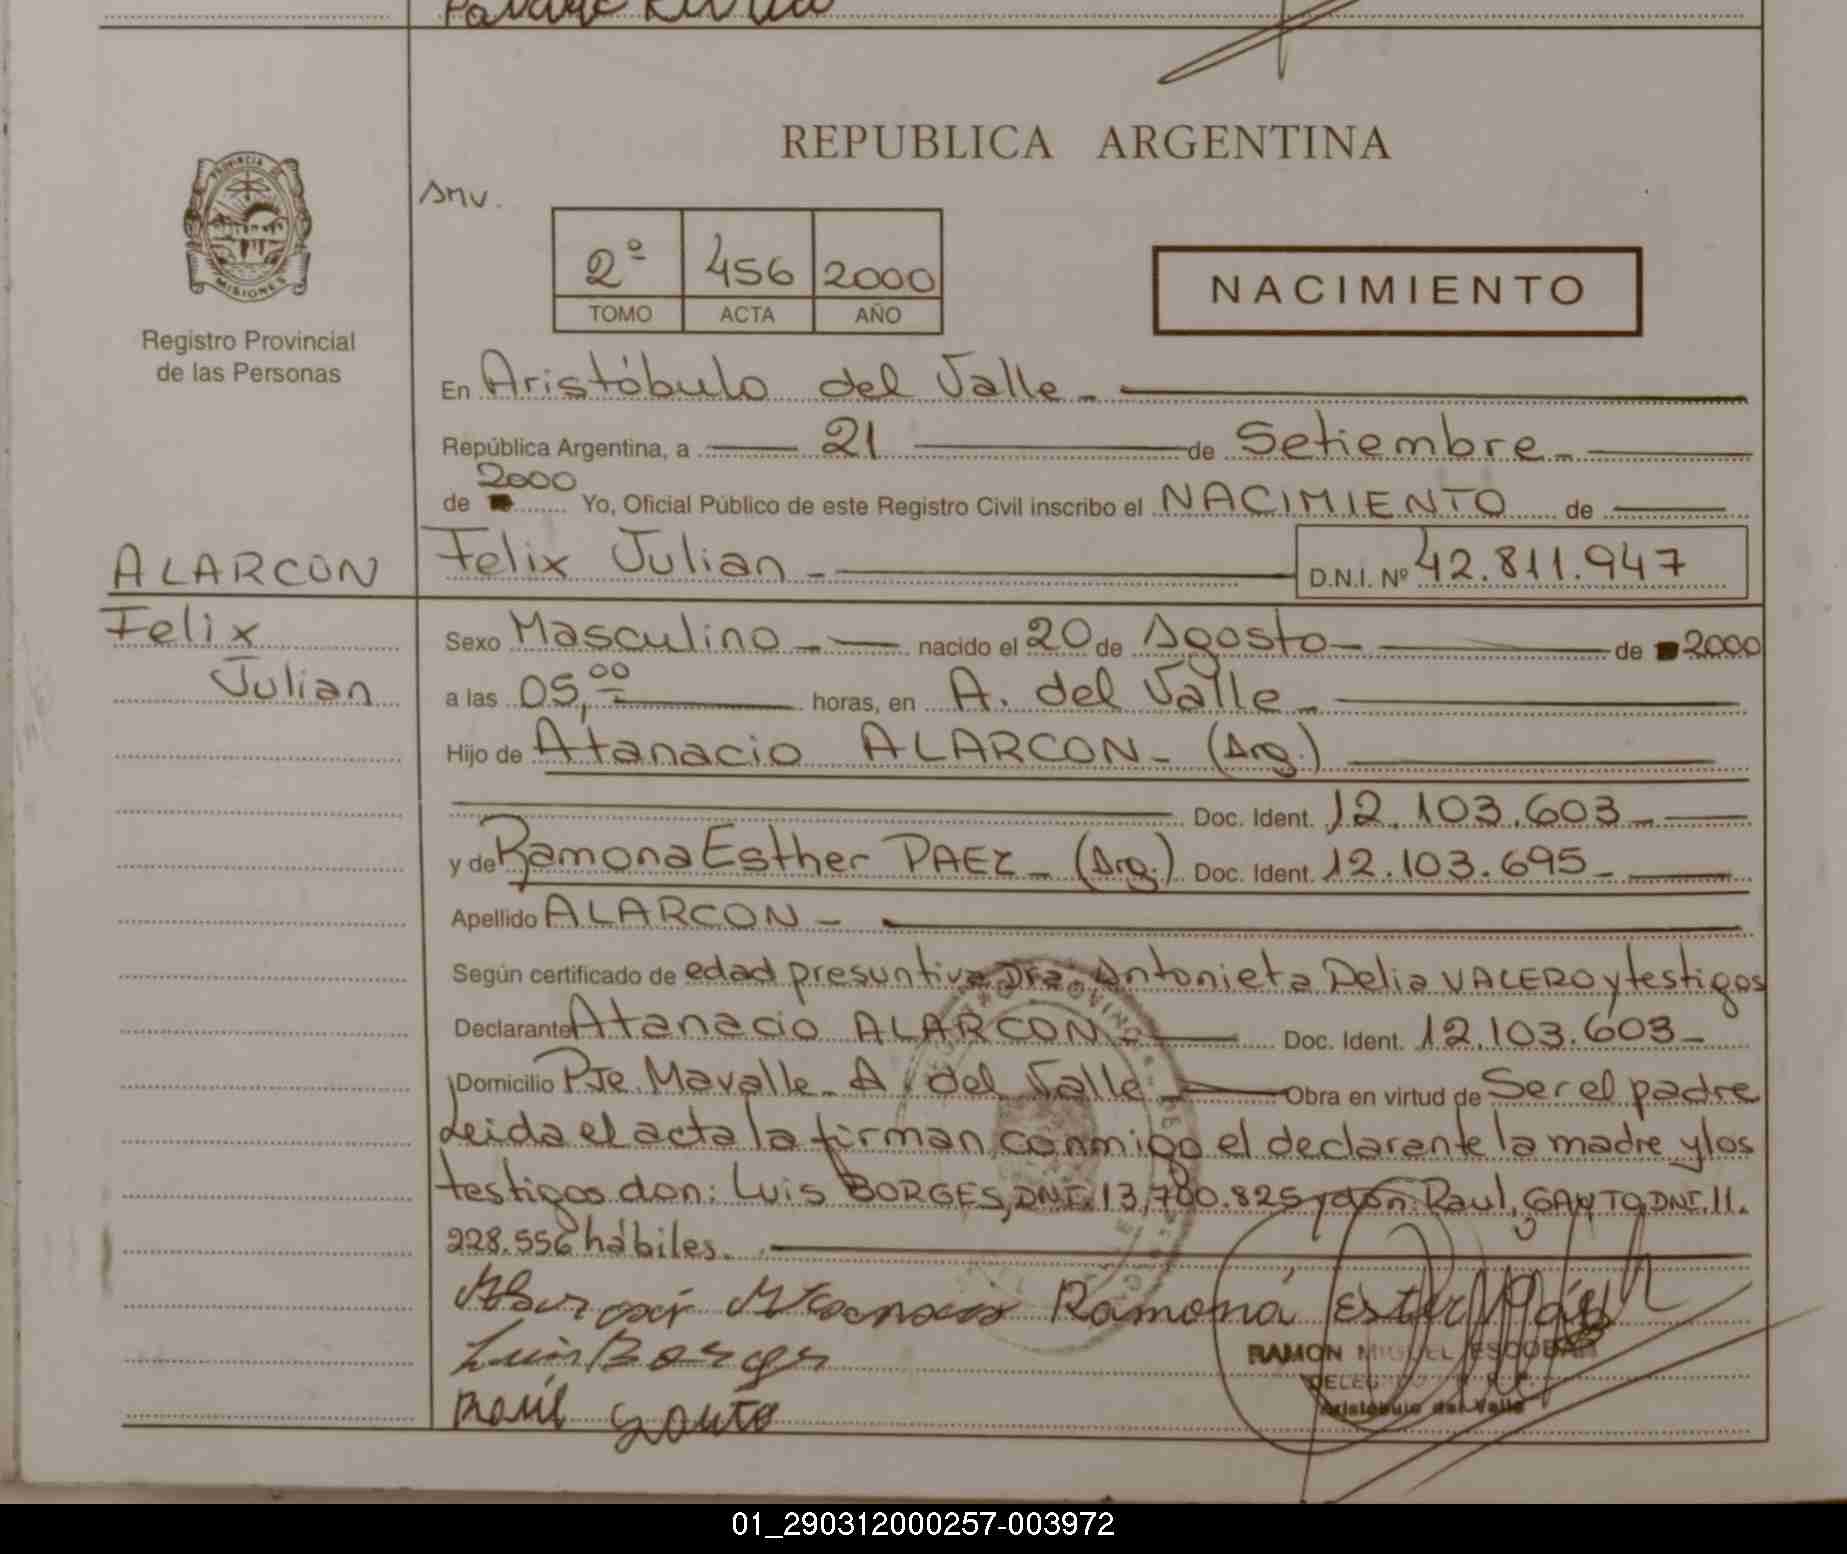 REPUBLICA ARGENTINA
PROVINCIA DE
MISIONES
Registro Provincial
de las Personas
smv.
2º 456 2000
TOMO ACTA AÑO
NACIMIENTO
En Aristóbulo del Valle -
República Argentina, a 21 de Setiembre -
2000
de Yo, Oficial Público de este Registro Civil inscribo el NACIMIENTO de
ALARCON
Felix Julian - D.N.I. Nº 42.811.947
Felix
Julian
Sexo Masculino - nacido el 20 de Agosto - de 2000
a las 05,00 horas, en A. del Valle -
Hijo de Atanacio ALARCON - (Arg.)
Doc. Ident. 12.103.603 -
y de Ramona Esther PAEZ - (Arg.) Doc. Ident. 12.103.695 -
Apellido ALARCON -
Según certificado de edad presuntiva Dra. Antonieta Delia VALERO y testigos
Declarante Atanacio ALARCON - Doc. Ident. 12.103.603 -
Domicilio Pje. Mavalle - A. del Valle - Obra en virtud de Ser el padre
Leida el acta la firman conmigo el declarante la madre y los
testigos don: Luis BORGES, DNI. 13,700.825 y don: Raul, GAUTO, DNI. 11.
228.556 hábiles.
Ramona Ester Páez
Luis Borges
Raúl Gauto
RAMON MIGUEL ESCOBAR
Aristóbulo del Valle
01_290312000257-003972